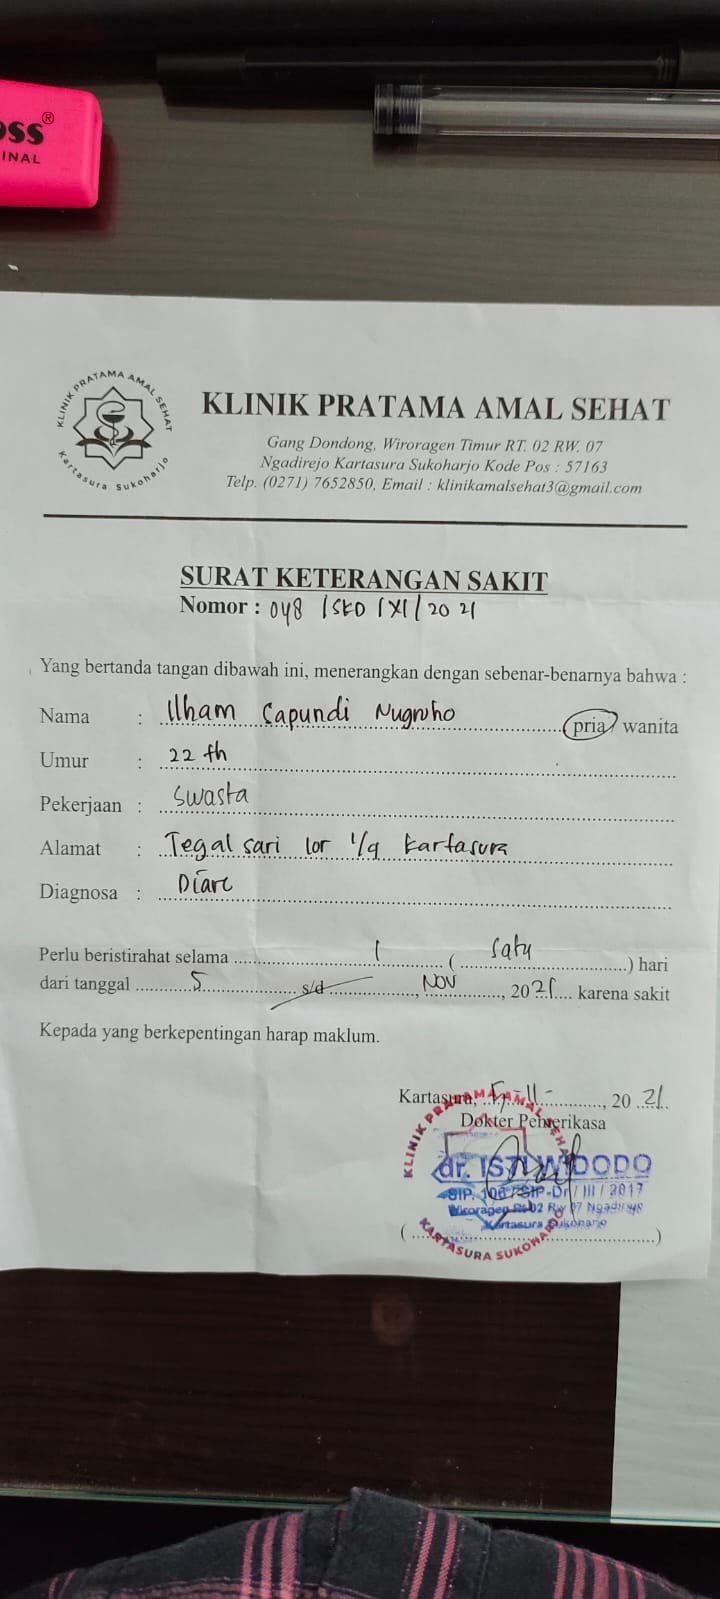 OSS®
INAL
KLINIK PRATAMA AMAL SEHAT
Kartasura Sukoharjo
KLINIK PRATAMA AMAL SEHAT
Gang Dondong, Wiroragen Timur RT. 02 RW. 07
Ngadirejo Kartasura Sukoharjo Kode Pos : 57163
Telp. (0271) 7652850, Email : klinikamalsehat3@gmail.com
SURAT KETERANGAN SAKIT
Nomor : 048 /SKD /XI/ 20 21
Yang bertanda tangan dibawah ini, menerangkan dengan sebenar-benarnya bahwa :
Nama : Ilham Sapundi Nugroho pria/ wanita
Umur : 22 th
Pekerjaan : Swasta
Alamat : Tegal sari lor 1/9 Kartasura
Diagnosa : Diare
Perlu beristirahat selama 1 ( satu ) hari
dari tanggal 5 s/d , Nov , 2021 karena sakit
Kepada yang berkepentingan harap maklum.
Kartasura, 5-11- , 20 21
Dokter Pemeriksa
KLINIK PRATAMA AMAL SEHAT
dr. ISTI WIDODO
SIP. 106 /SIP-Dr / III / 2017
Wiroragen Rt 02 Rw 07 Ngadirejo
Kartasura Sukoharjo
( )
KARTASURA SUKOHARJO